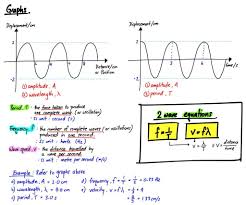 Graphs.
Displacement/cm
Displacement/cm
2
2
Distance/cm
or Position
time/s
-2
-2
① amplitude, A
② wavelength, λ
① amplitude, A
② period, T
Period, T - the time taken to produce
one complete wave (or oscillation)
SI unit : second (s)
Frequency, f - the number of complete waves (or oscillations)
produced in one second
SI unit : hertz (Hz)
Wave speed, v - the distance travelled by
a wave per second
SI unit : metre per second (m/s)
2 wave equations
f = 1/T
v = fλ
Example : Refer to graphs above
a) amplitude, A = 2.0 cm
b) wavelength, λ =
c) period, T =
d) frequency, f = 1/T =
e) velocity, v = fλ =